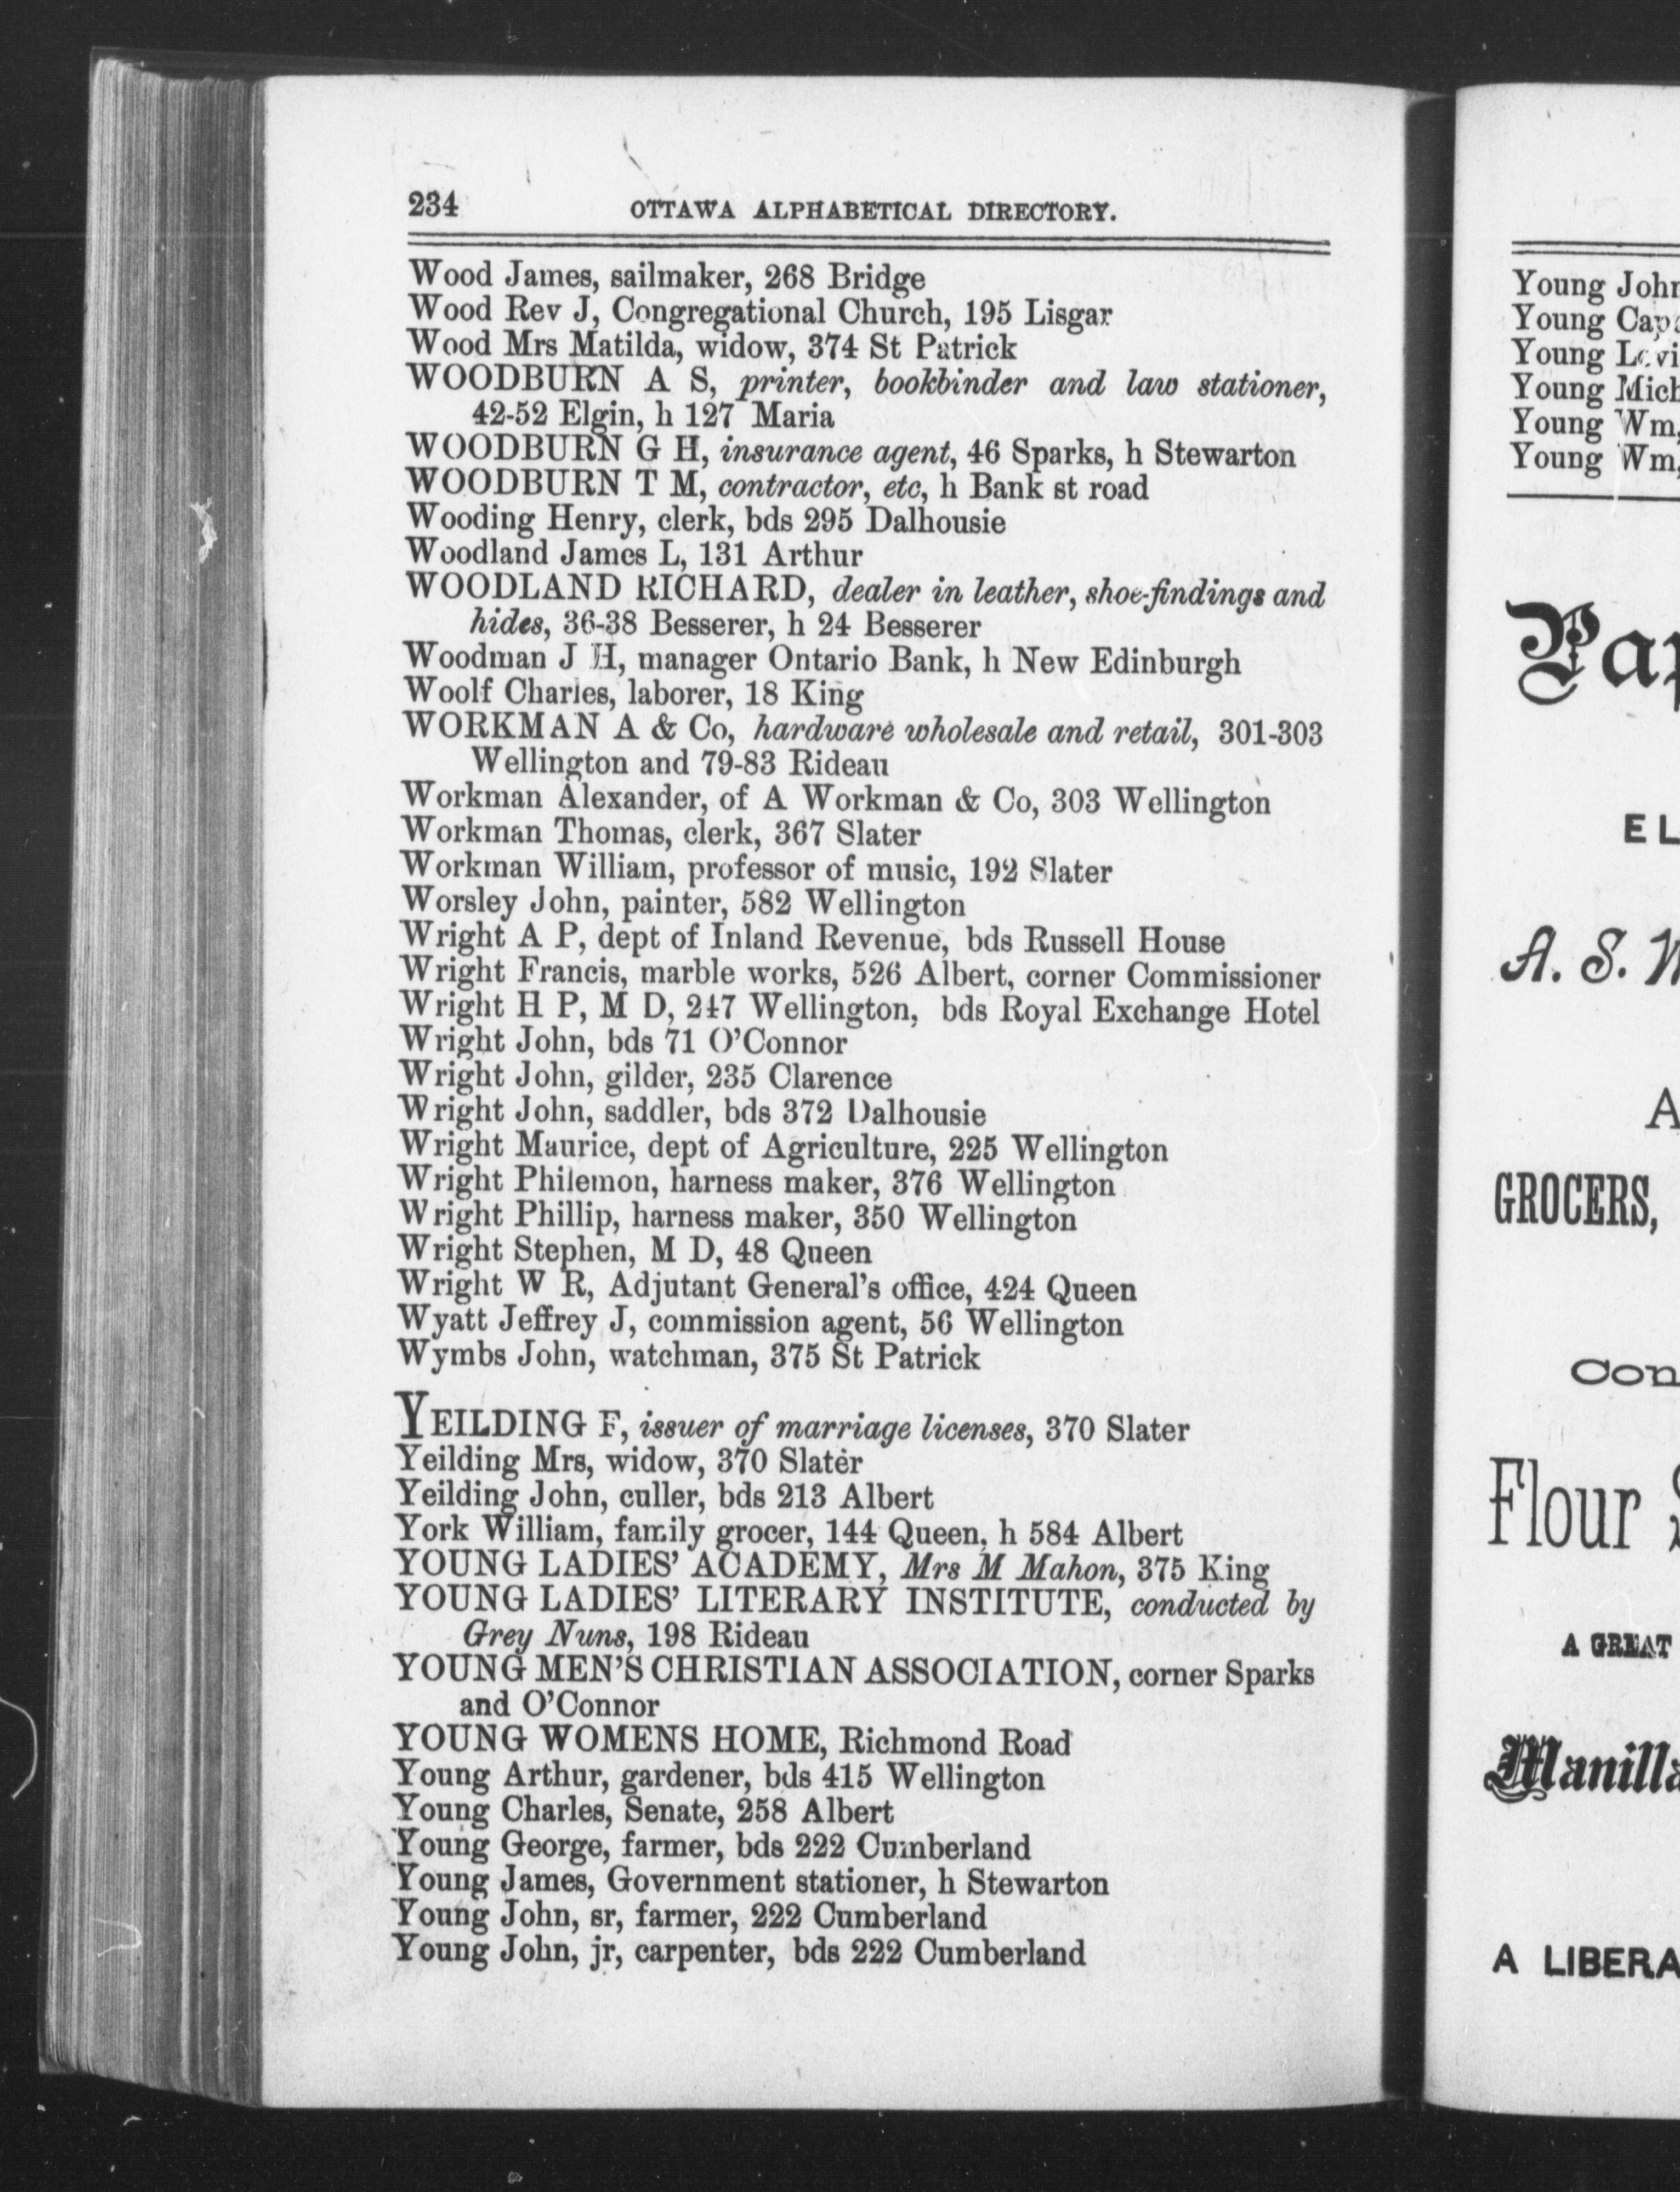 234 OTTAWA ALPHABETICAL DIRECTORY.
Wood James, sailmaker, 268 Bridge
Wood Rev J, Congregational Church, 195 Lisgar
Wood Mrs Matilda, widow, 374 St Patrick
WOODBURN A S, printer, bookbinder and law stationer,
42-52 Elgin, h 127 Maria
WOODBURN G H, insurance agent, 46 Sparks, h Stewarton
WOODBURN T M, contractor, etc, h Bank st road
Wooding Henry, clerk, bds 295 Dalhousie
Woodland James L, 131 Arthur
WOODLAND RICHARD, dealer in leather, shoe-findings and
hides, 36-38 Besserer, h 24 Besserer
Woodman J H, manager Ontario Bank, h New Edinburgh
Woolf Charles, laborer, 18 King
WORKMAN A & Co, hardware wholesale and retail, 301-303
Wellington and 79-83 Rideau
Workman Alexander, of A Workman & Co, 303 Wellington
Workman Thomas, clerk, 367 Slater
Workman William, professor of music, 192 Slater
Worsley John, painter, 582 Wellington
Wright A P, dept of Inland Revenue, bds Russell House
Wright Francis, marble works, 526 Albert, corner Commissioner
Wright H P, M D, 247 Wellington, bds Royal Exchange Hotel
Wright John, bds 71 O'Connor
Wright John, gilder, 235 Clarence
Wright John, saddler, bds 372 Dalhousie
Wright Maurice, dept of Agriculture, 225 Wellington
Wright Philemon, harness maker, 376 Wellington
Wright Phillip, harness maker, 350 Wellington
Wright Stephen, M D, 48 Queen
Wright W R, Adjutant General's office, 424 Queen
Wyatt Jeffrey J, commission agent, 56 Wellington
Wymbs John, watchman, 375 St Patrick
YEILDING F, issuer of marriage licenses, 370 Slater
Yeilding Mrs, widow, 370 Slater
Yeilding John, culler, bds 213 Albert
York William, family grocer, 144 Queen, h 584 Albert
YOUNG LADIES' ACADEMY, Mrs M Mahon, 375 King
YOUNG LADIES' LITERARY INSTITUTE, conducted by
Grey Nuns, 198 Rideau
YOUNG MEN'S CHRISTIAN ASSOCIATION, corner Sparks
and O'Connor
YOUNG WOMENS HOME, Richmond Road
Young Arthur, gardener, bds 415 Wellington
Young Charles, Senate, 258 Albert
Young George, farmer, bds 222 Cumberland
Young James, Government stationer, h Stewarton
Young John, sr, farmer, 222 Cumberland
Young John, jr, carpenter, bds 222 Cumberland
Young
Young
Young
Young
Young Wm,
Young Wm,
A. S.
A
GROCERS,
Flour
A GREAT
A